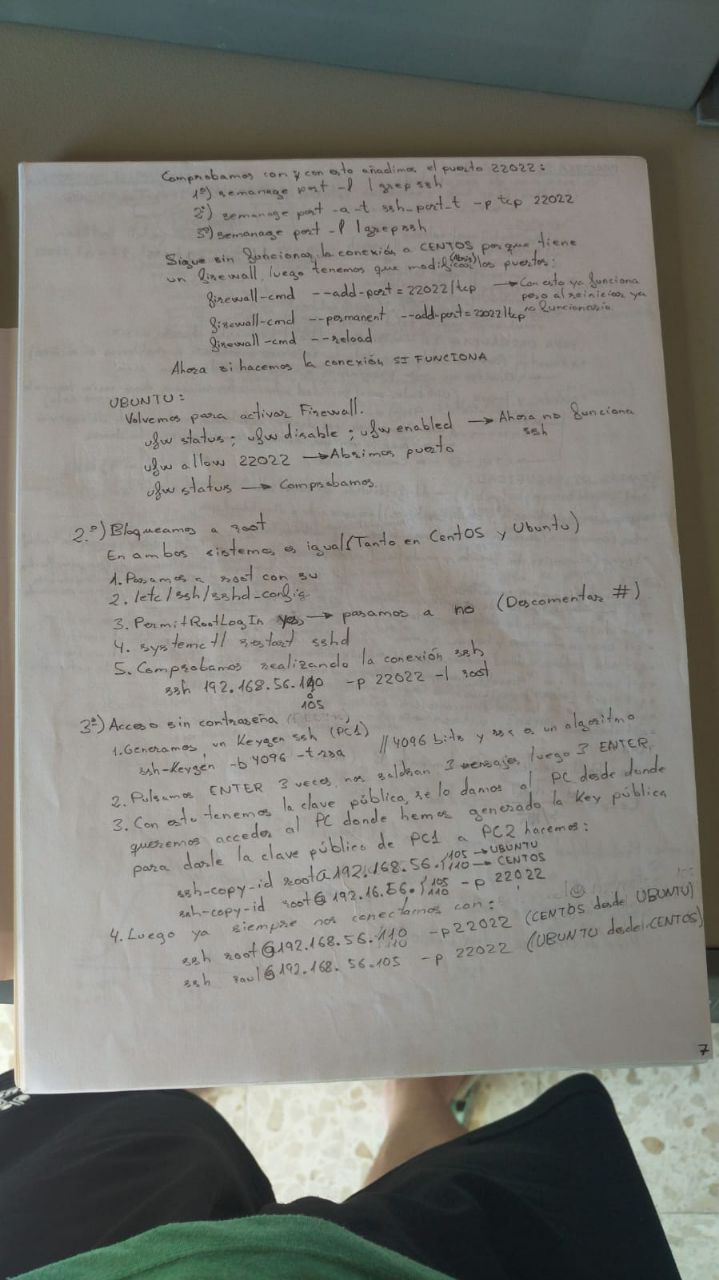 Comprobamos con y con esto añadimos el puerto 22022:
1º) semanage port -l | grep ssh
2º) semanage port -a -t ssh_port_t -p tcp 22022
3º) semanage port -l | grep ssh
Sigue sin funcionar la conexión a CENTOS porque tiene
un firewall, luego tenemos que modificar (Abrir) los puertos:
firewall-cmd --add-port=22022/tcp → Con esto ya funciona
pero al reiniciar ya
firewall-cmd --permanent --add-port=22022/tcp no funcionaría
firewall-cmd --reload
Ahora si hacemos la conexión SI FUNCIONA
UBUNTU:
Volvemos para activar Firewall.
ufw status; ufw disable; ufw enabled → Ahora no funciona
ssh
ufw allow 22022 → Abrimos puerto
ufw status → Comprobamos
2.º) Bloqueamos a root
En ambos sistemas es igual (Tanto en CentOS y Ubuntu)
1. Pasamos a root con su
2. /etc/ssh/sshd-config
3. PermitRootLogIn yes → pasamos a no (Descomentar #)
4. systemctl restart sshd
5. Comprobamos realizando la conexión ssh
ssh 192.168.56.110 -p 22022 -l root
105
3º) Acceso sin contraseña
1. Generamos un Keygen ssh (PC1)
ssh-Keygen -b 4096 -t rsa //4096 bits y rsa es un algoritmo
2. Pulsamos ENTER 3 veces, nos saldran 3 mensajes, luego 3 ENTER.
3. Con esto tenemos la clave pública, se lo damos al PC desde donde
queremos acceder al PC donde hemos generado la Key pública
para darle la clave público de PC1 a PC2 hacemos:
ssh-copy-id root@192.168.56. 105 → UBUNTU
110 → CENTOS
ssh-copy-id root@192.16.56. 105 -p 22022
110
4. Luego ya siempre nos conectamos con:
ssh root@192.168.56.110 -p22022 (CENTOS desde UBUNTU)
110
ssh raul@192.168.56.105 -p 22022 (UBUNTU desde CENTOS)
7